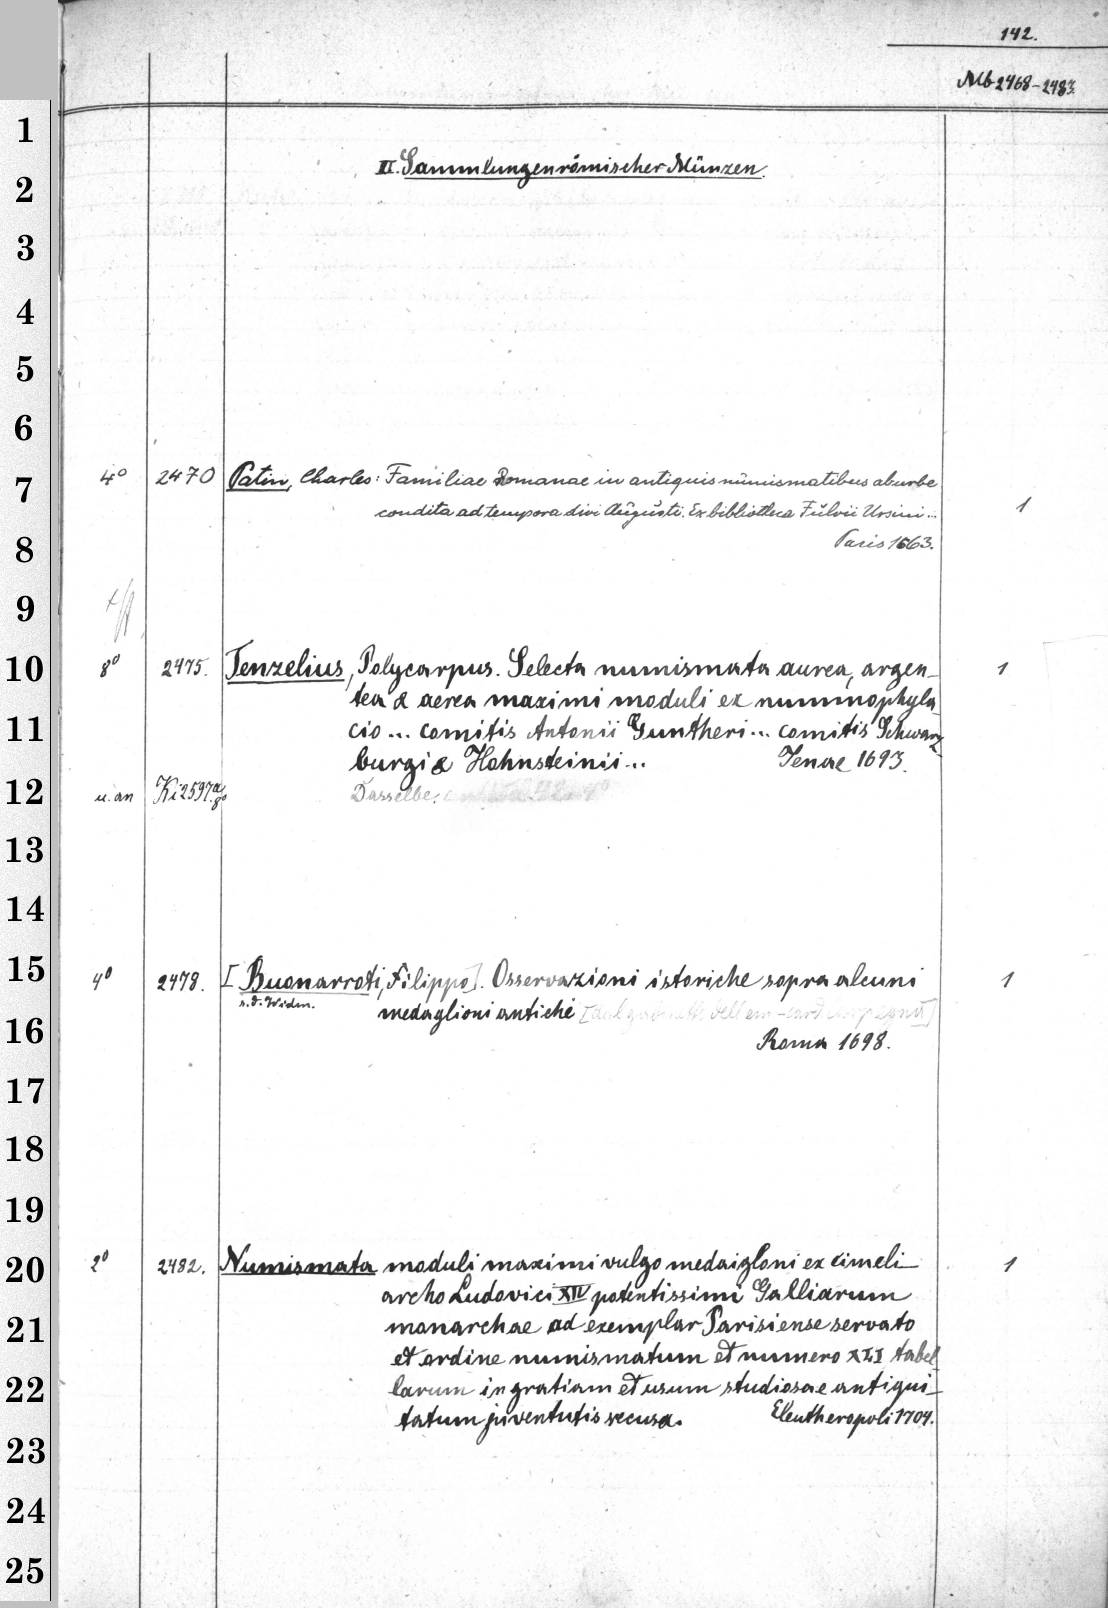 142.
Mb 2468-2483.
II. Sammlungen römischer Münzen.
4° 2470 Patin, Charles: Familiae Romanae in antiquis numismatibus ab urbe
condita ad tempora divi Augusti. Ex bibliotheca Fulvii Ursini... 1
Paris 1663.
8° 2475. Tenzelius, Polycarpus. Selecta numismata aurea, argen- 1
tea & aerea maximi moduli ex nummophyla
cio... comitis Antonii Guntheri... comitis Schwarz
burgi & Hohnsteinii... Jenae 1693.
u. an Ki 2597 8° Dasselbe.
4° 2478. [Buonarroti, Filippo]. Osservazioni istoriche sopra alcuni 1
s. d. Widm. medaglioni antichi
Roma 1698.
2° 2482. Numismata moduli maximi vulgo medaigloni ex cimeli- 1
archo Ludovici XIV potentissimi Galliarum
monarchae ad exemplar Parisiense servato
et ordine numismatum et numero XLI tabel-
larum in gratiam et usum studiosae antiqui-
tatum juventutis recusa. Eleutheropoli 1704.
1
2
3
4
5
6
7
8
9
10
11
12
13
14
15
16
17
18
19
20
21
22
23
24
25